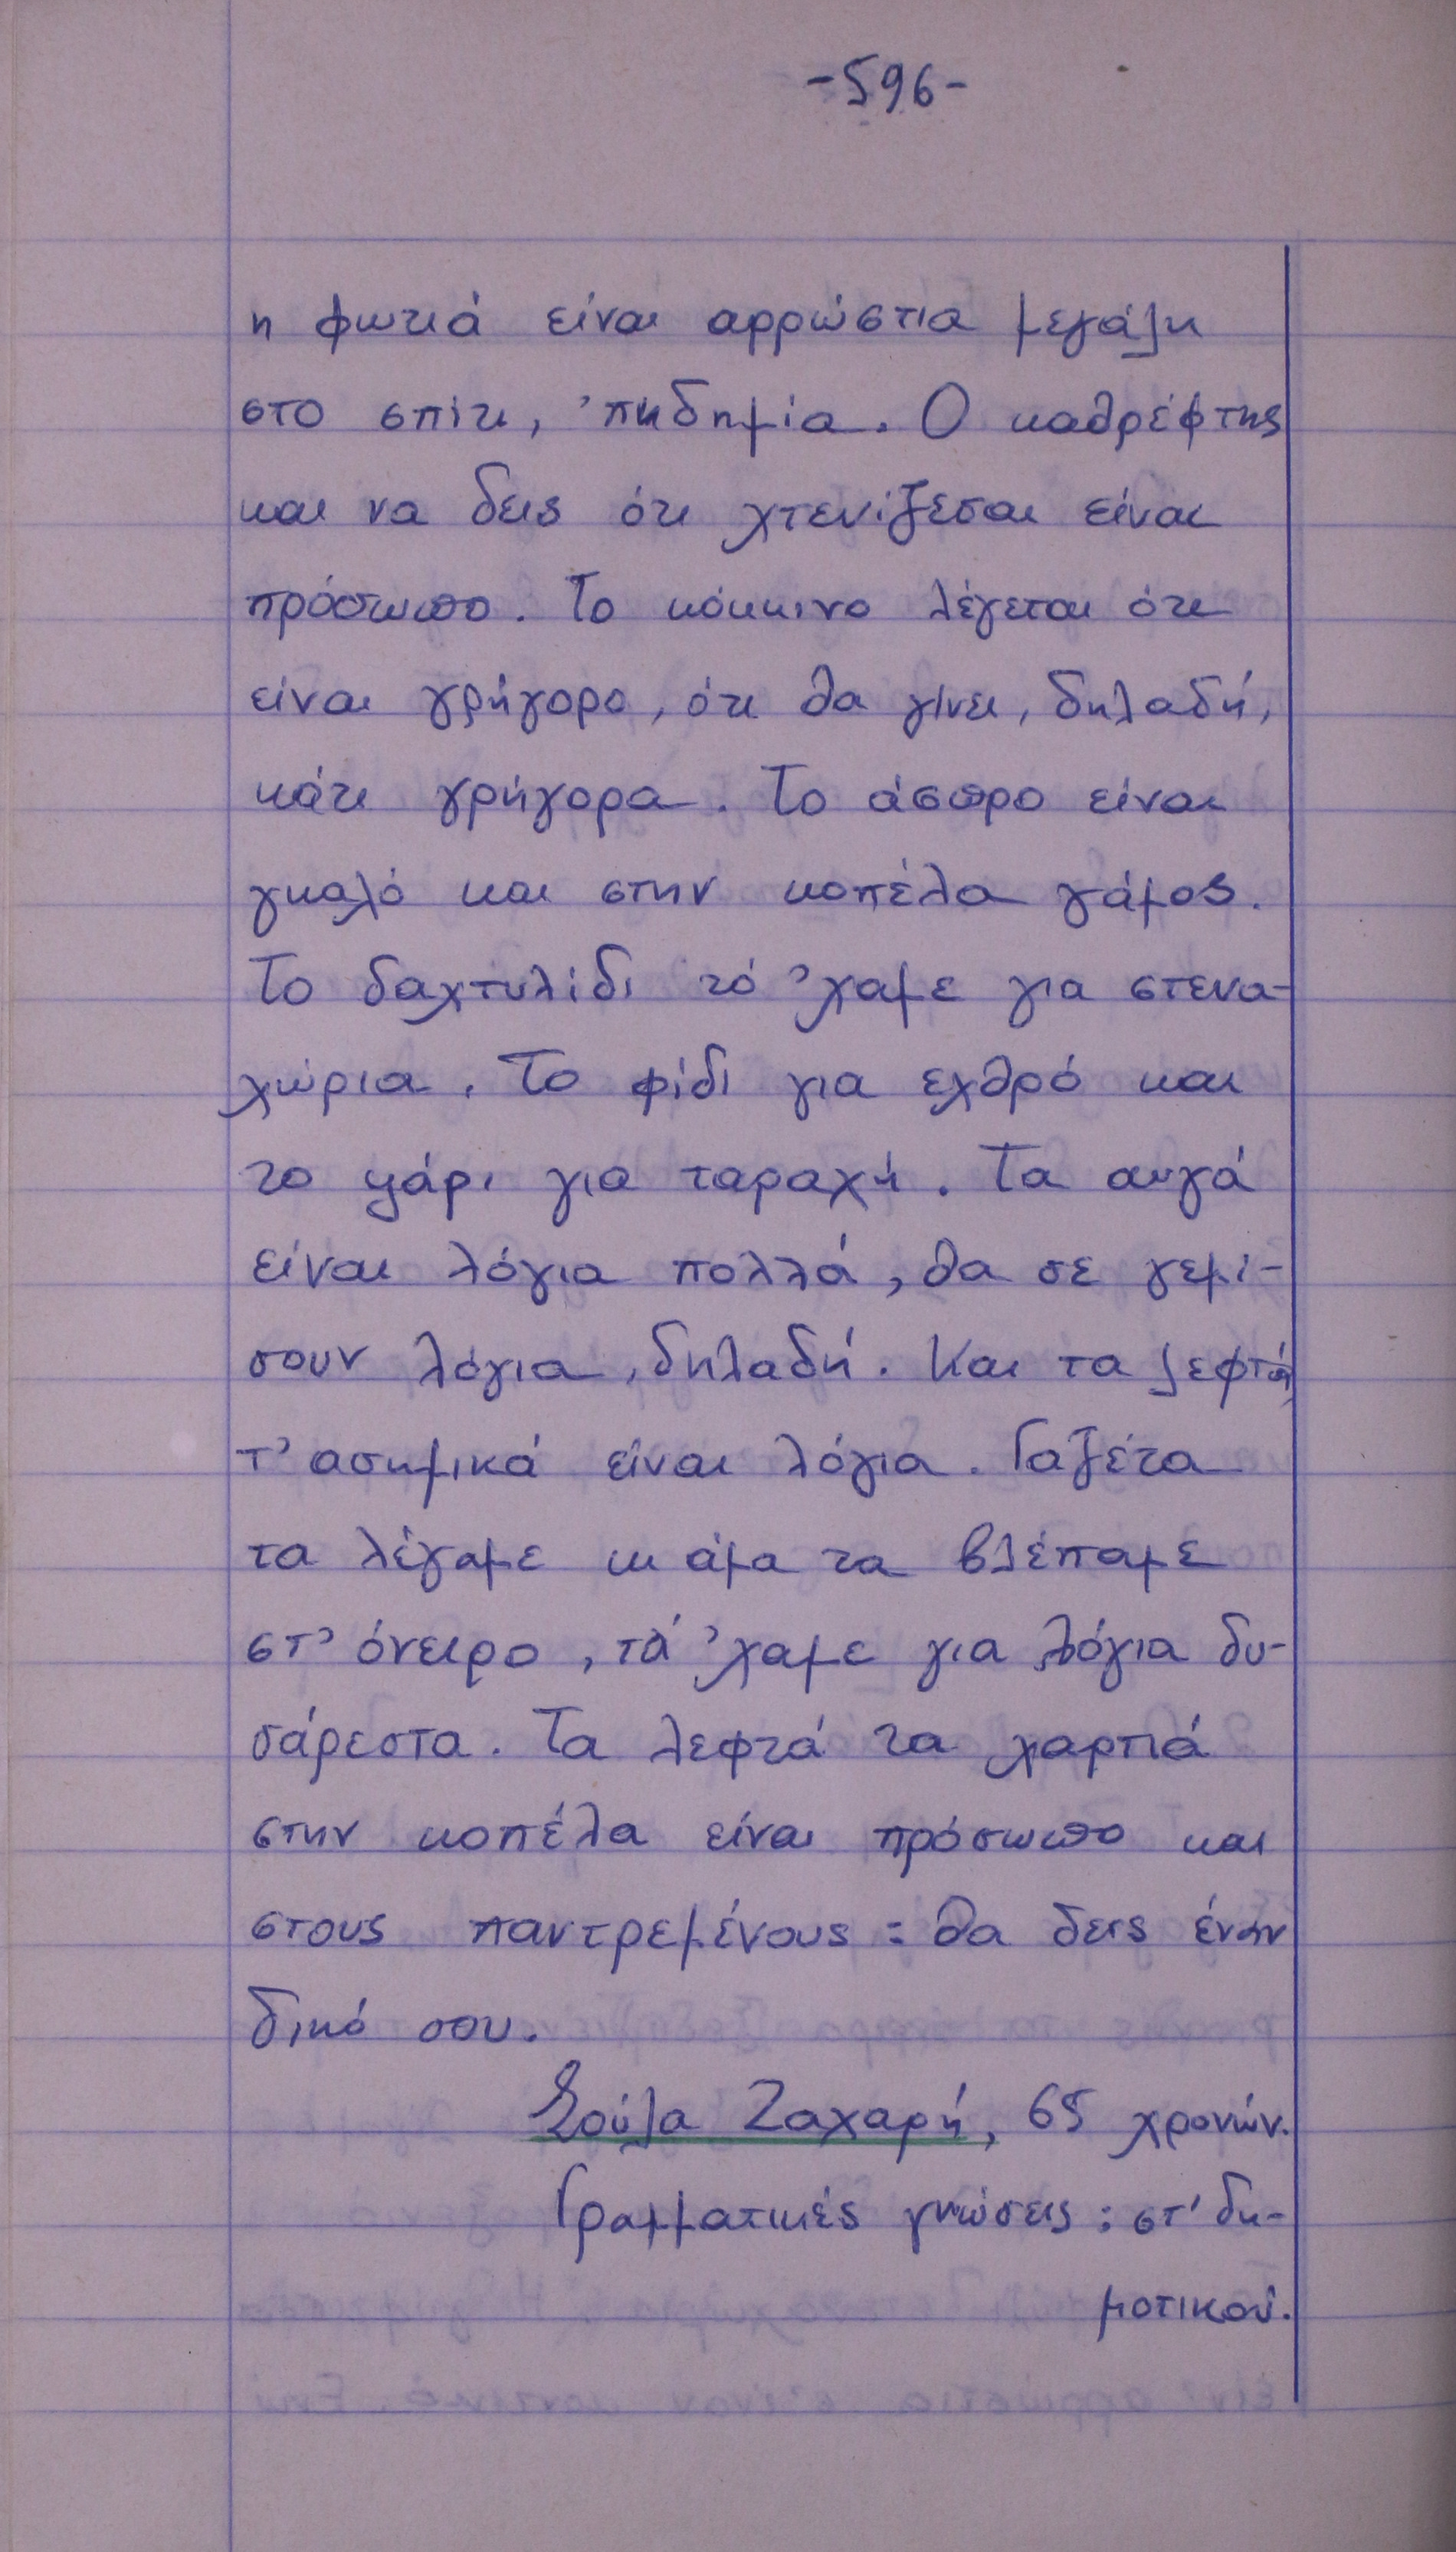 -596-
η φωτιά είναι αρρώστια μεγάλη
στο σπίτι, 'πιδημία. Ο καθρέφτης
και να δεις ότι χτενίζεσαι είναι
πρόσωπο. Το κόκκινο λέγεται ότι
είναι γρήγορο, ότι θα γίνει, δηλαδή,
κάτι γρήγορα. Το άσπρο είναι
γκαλό και στην κοπέλα γάμος.
Το δαχτυλίδι τό 'χαμε για στενα-
χώρια. Το φίδι για εχθρό και
το ψάρι για ταραχή. Τα αυγά
είναι λόγια πολλά, θα σε γεμί-
σουν λόγια, δηλαδή. Και τα λεφτά,
τ' ασημικά είναι λόγια. Γαζέτα
τα λέγαμε κι άμα τα βλέπαμε
στ' όνειρο, τά 'χαμε για λόγια δυ-
σάρεστα. Τα λεφτά τα χαρτιά
στην κοπέλα είναι πρόσωπο και
στους παντρεμένους: θα δεις έναν
δικό σου.
Σούλα Ζαχαρή, 65 χρονών.
Γραμματικές γνώσεις: στ' δη-
μοτικού.